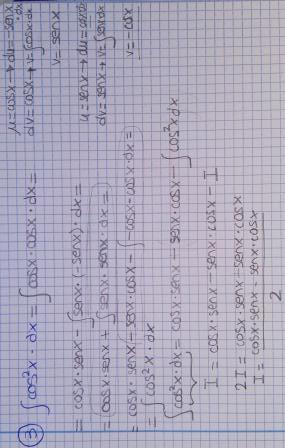 ③ ∫cos²x·dx = ∫cosx·cosx·dx =
u=cosx→du=-senx·dx
dv=cosx→v=∫cosx·dx
v=senx
= cosx·senx - ∫senx·(-senx)·dx =
= cosx·senx + ∫senx·senx·dx =
u=senx→du=cosx
dv=senx→v=∫senx dx
v=-cosx
= cosx·senx - senx·cosx - ∫cosx·cosx·dx =
= ∫cos²x·dx
∫cos²x·dx = cosx·senx - senx·cosx - ∫cos²x dx
I = cosx·senx - senx·cosx - I
2I = cosx·senx - senx·cosx
I = cosx·senx - senx·cosx
2